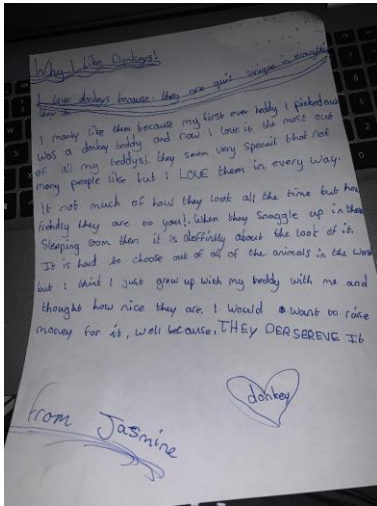 Why I Like Donkeys!
I love donkeys because they are quit unique in everything
they
I manly like them because my first ever teddy I picked out
was a donkey teddy and now I love it the most out
of all my teddys!. they seem very speacil that not
many people like but I LOVE them in every way.
It not much of how they look all the time but how
they are to you!. When they snuggle up in there
Sleeping room then it is deffinitly about the look of it.
It is hard to choose out of all of the animals in the world
but I think I just grew up with my teddy with me and
thought how nice they are. I would want to raise
money for it, well because, THEY DERSEREVE It
donkey
from Jasmine